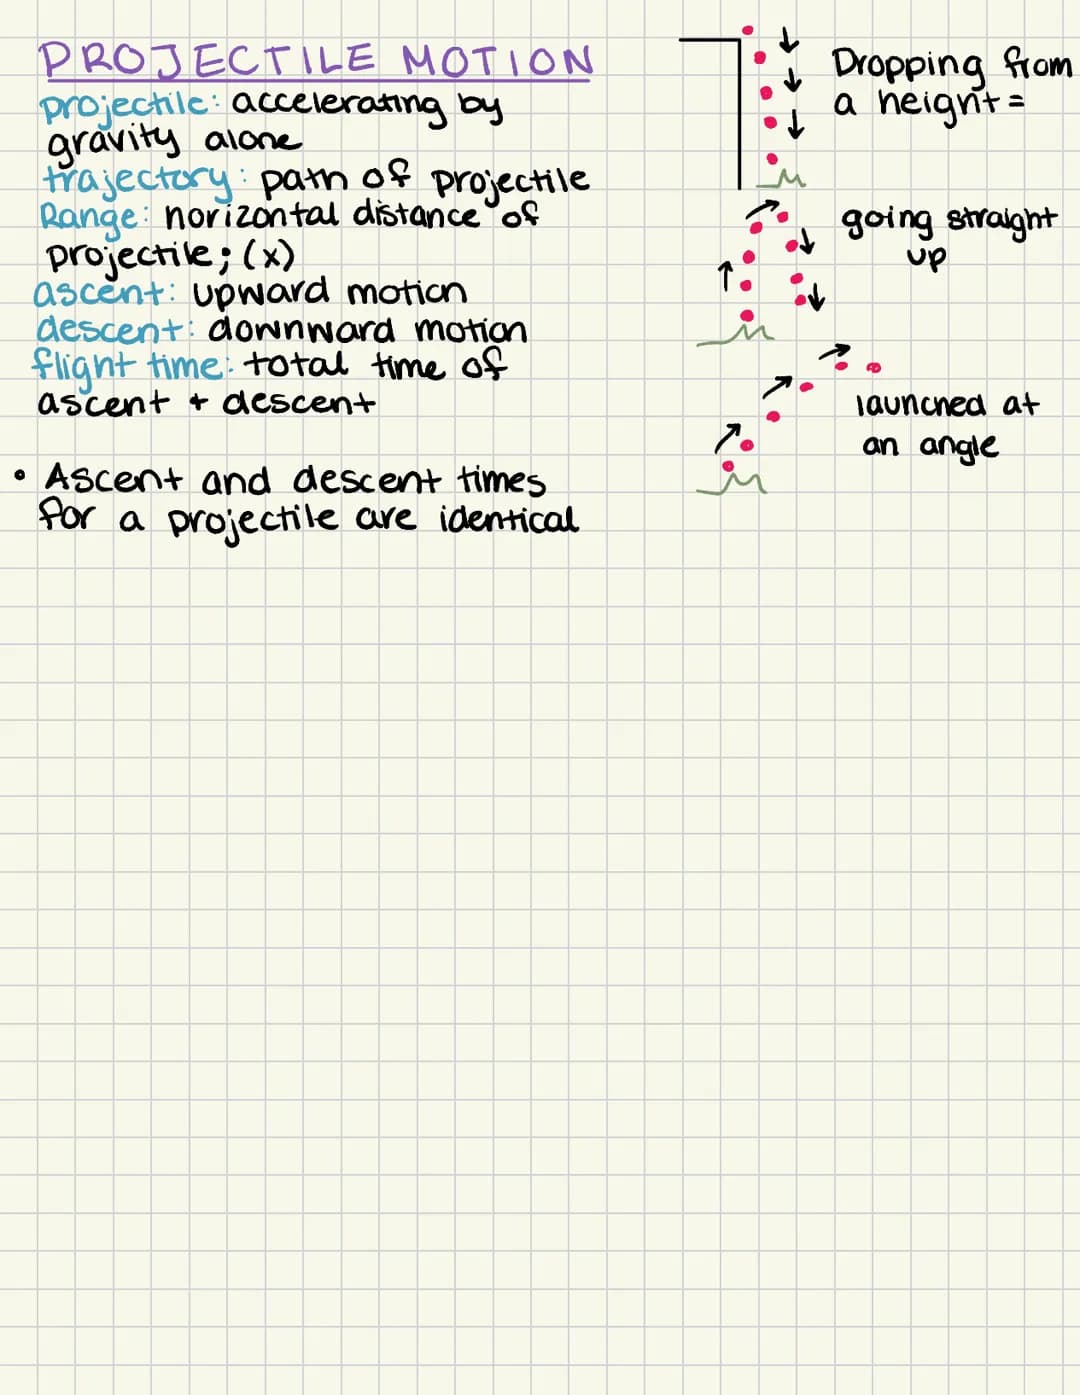 PROJECTILE MOTION
projectile: accelerating by
gravity alone
trajectory: path of projectile
Range: horizontal distance of
projectile; (x)
ascent: upward motion
descent: downward motion
flight time: total time of
ascent + descent
• Ascent and descent times
for a projectile are identical
Dropping from
a height =
going straight
up
launched at
an angle